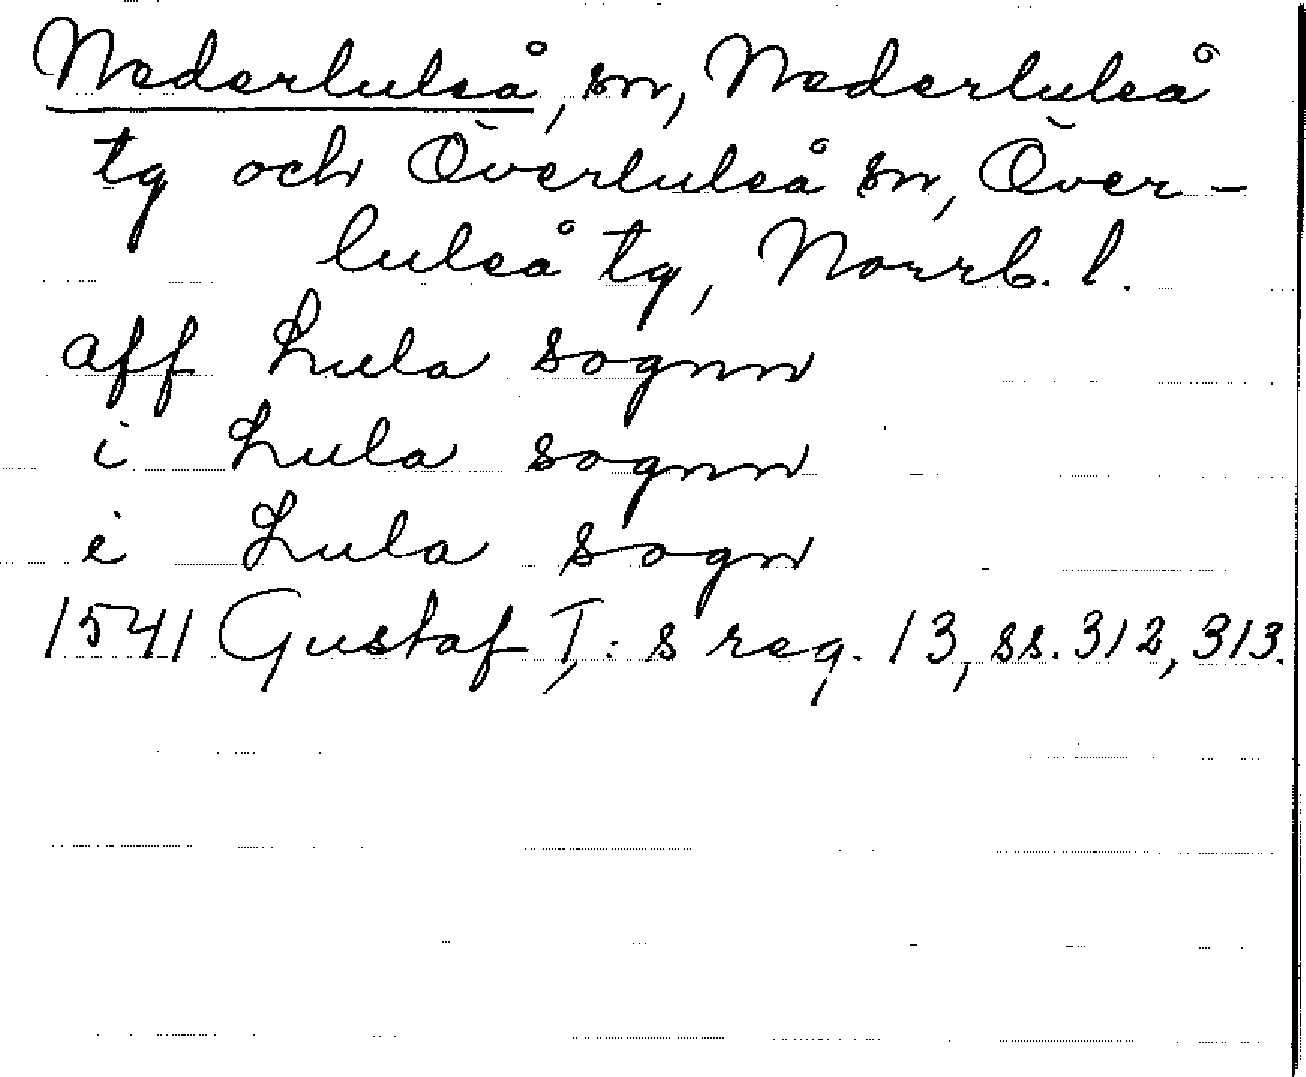 Nederluleå, sn, Nederluleå
tg och Överluleå sn, Över-
luleå tg, Norrb. l.
aff Lula sognn
i Lula sognn
i Lula sogn
1541 Gustaf I,: s reg. 13, ss. 312, 313.